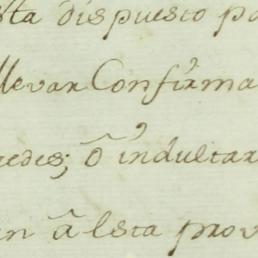 sta dispuesto pa
llevar Confirma
edes; ô indultar
n â Esta prov